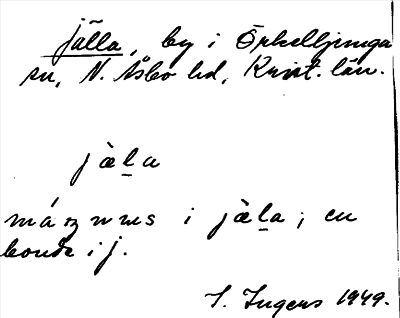 Jälla, by i Örkelljunga
sn, N. Åsbo hd, Krist. län.
jäla
i jäla; en
bonde i j.
I. Ingers 1949.